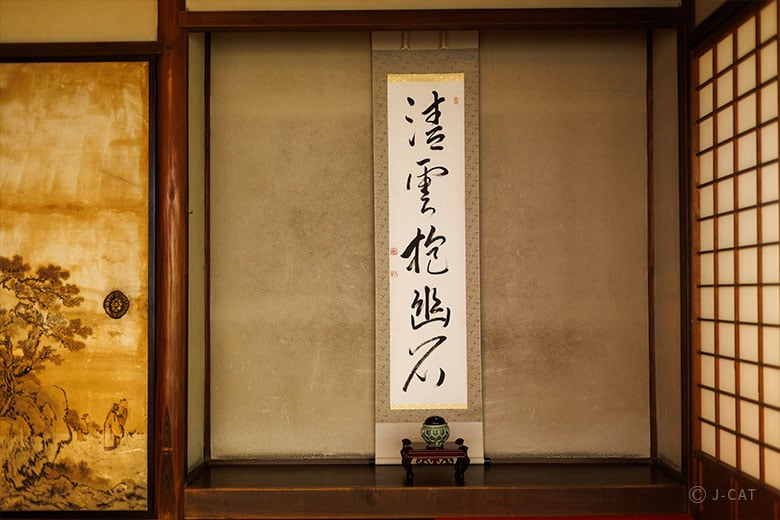 清雲抱幽石
© J-CAT